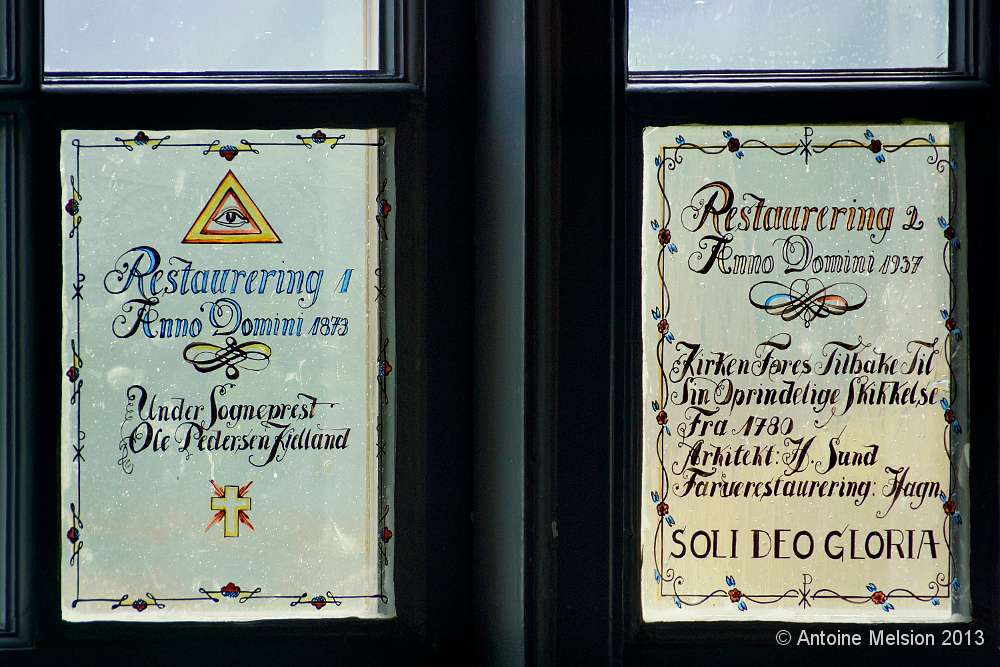 Restaurering 1
Anno Domini 1873
Under Sogneprest
Ole Pedersen Kjelland
Restaurering 2
Anno Domini 1937
Kirken Føres Tilbake Til
Sin Oprindelige Skikkelse
Fra 1780
Arkitekt: H. Sund
Farverestaurering: Hagn.
SOLI DEO GLORIA
© Antoine Melsion 2013